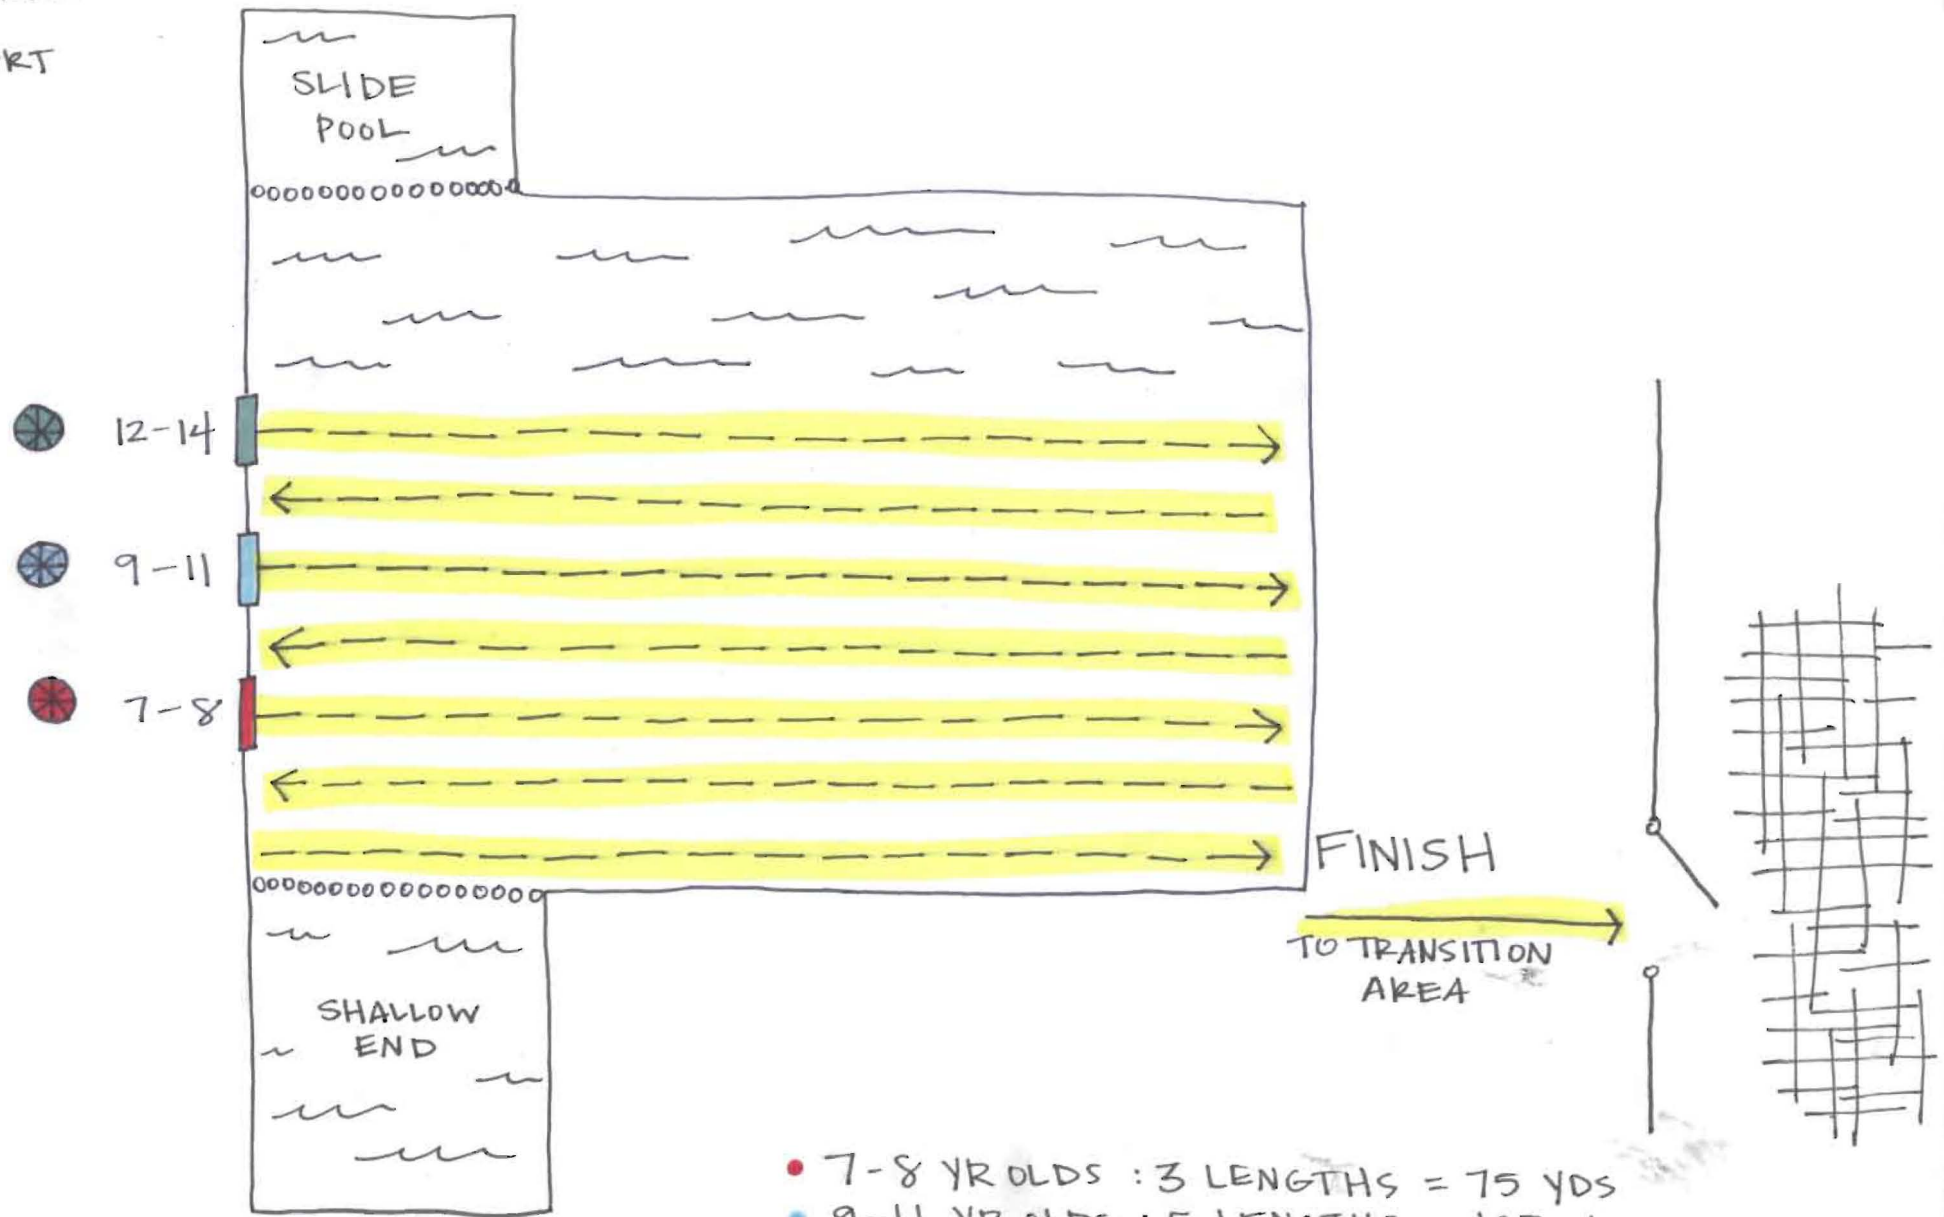 RT
SLIDE
POOL
12-14
9-11
7-8
FINISH
TO TRANSITION
AREA
SHALLOW
END
• 7-8 YR OLDS : 3 LENGTHS = 75 YDS